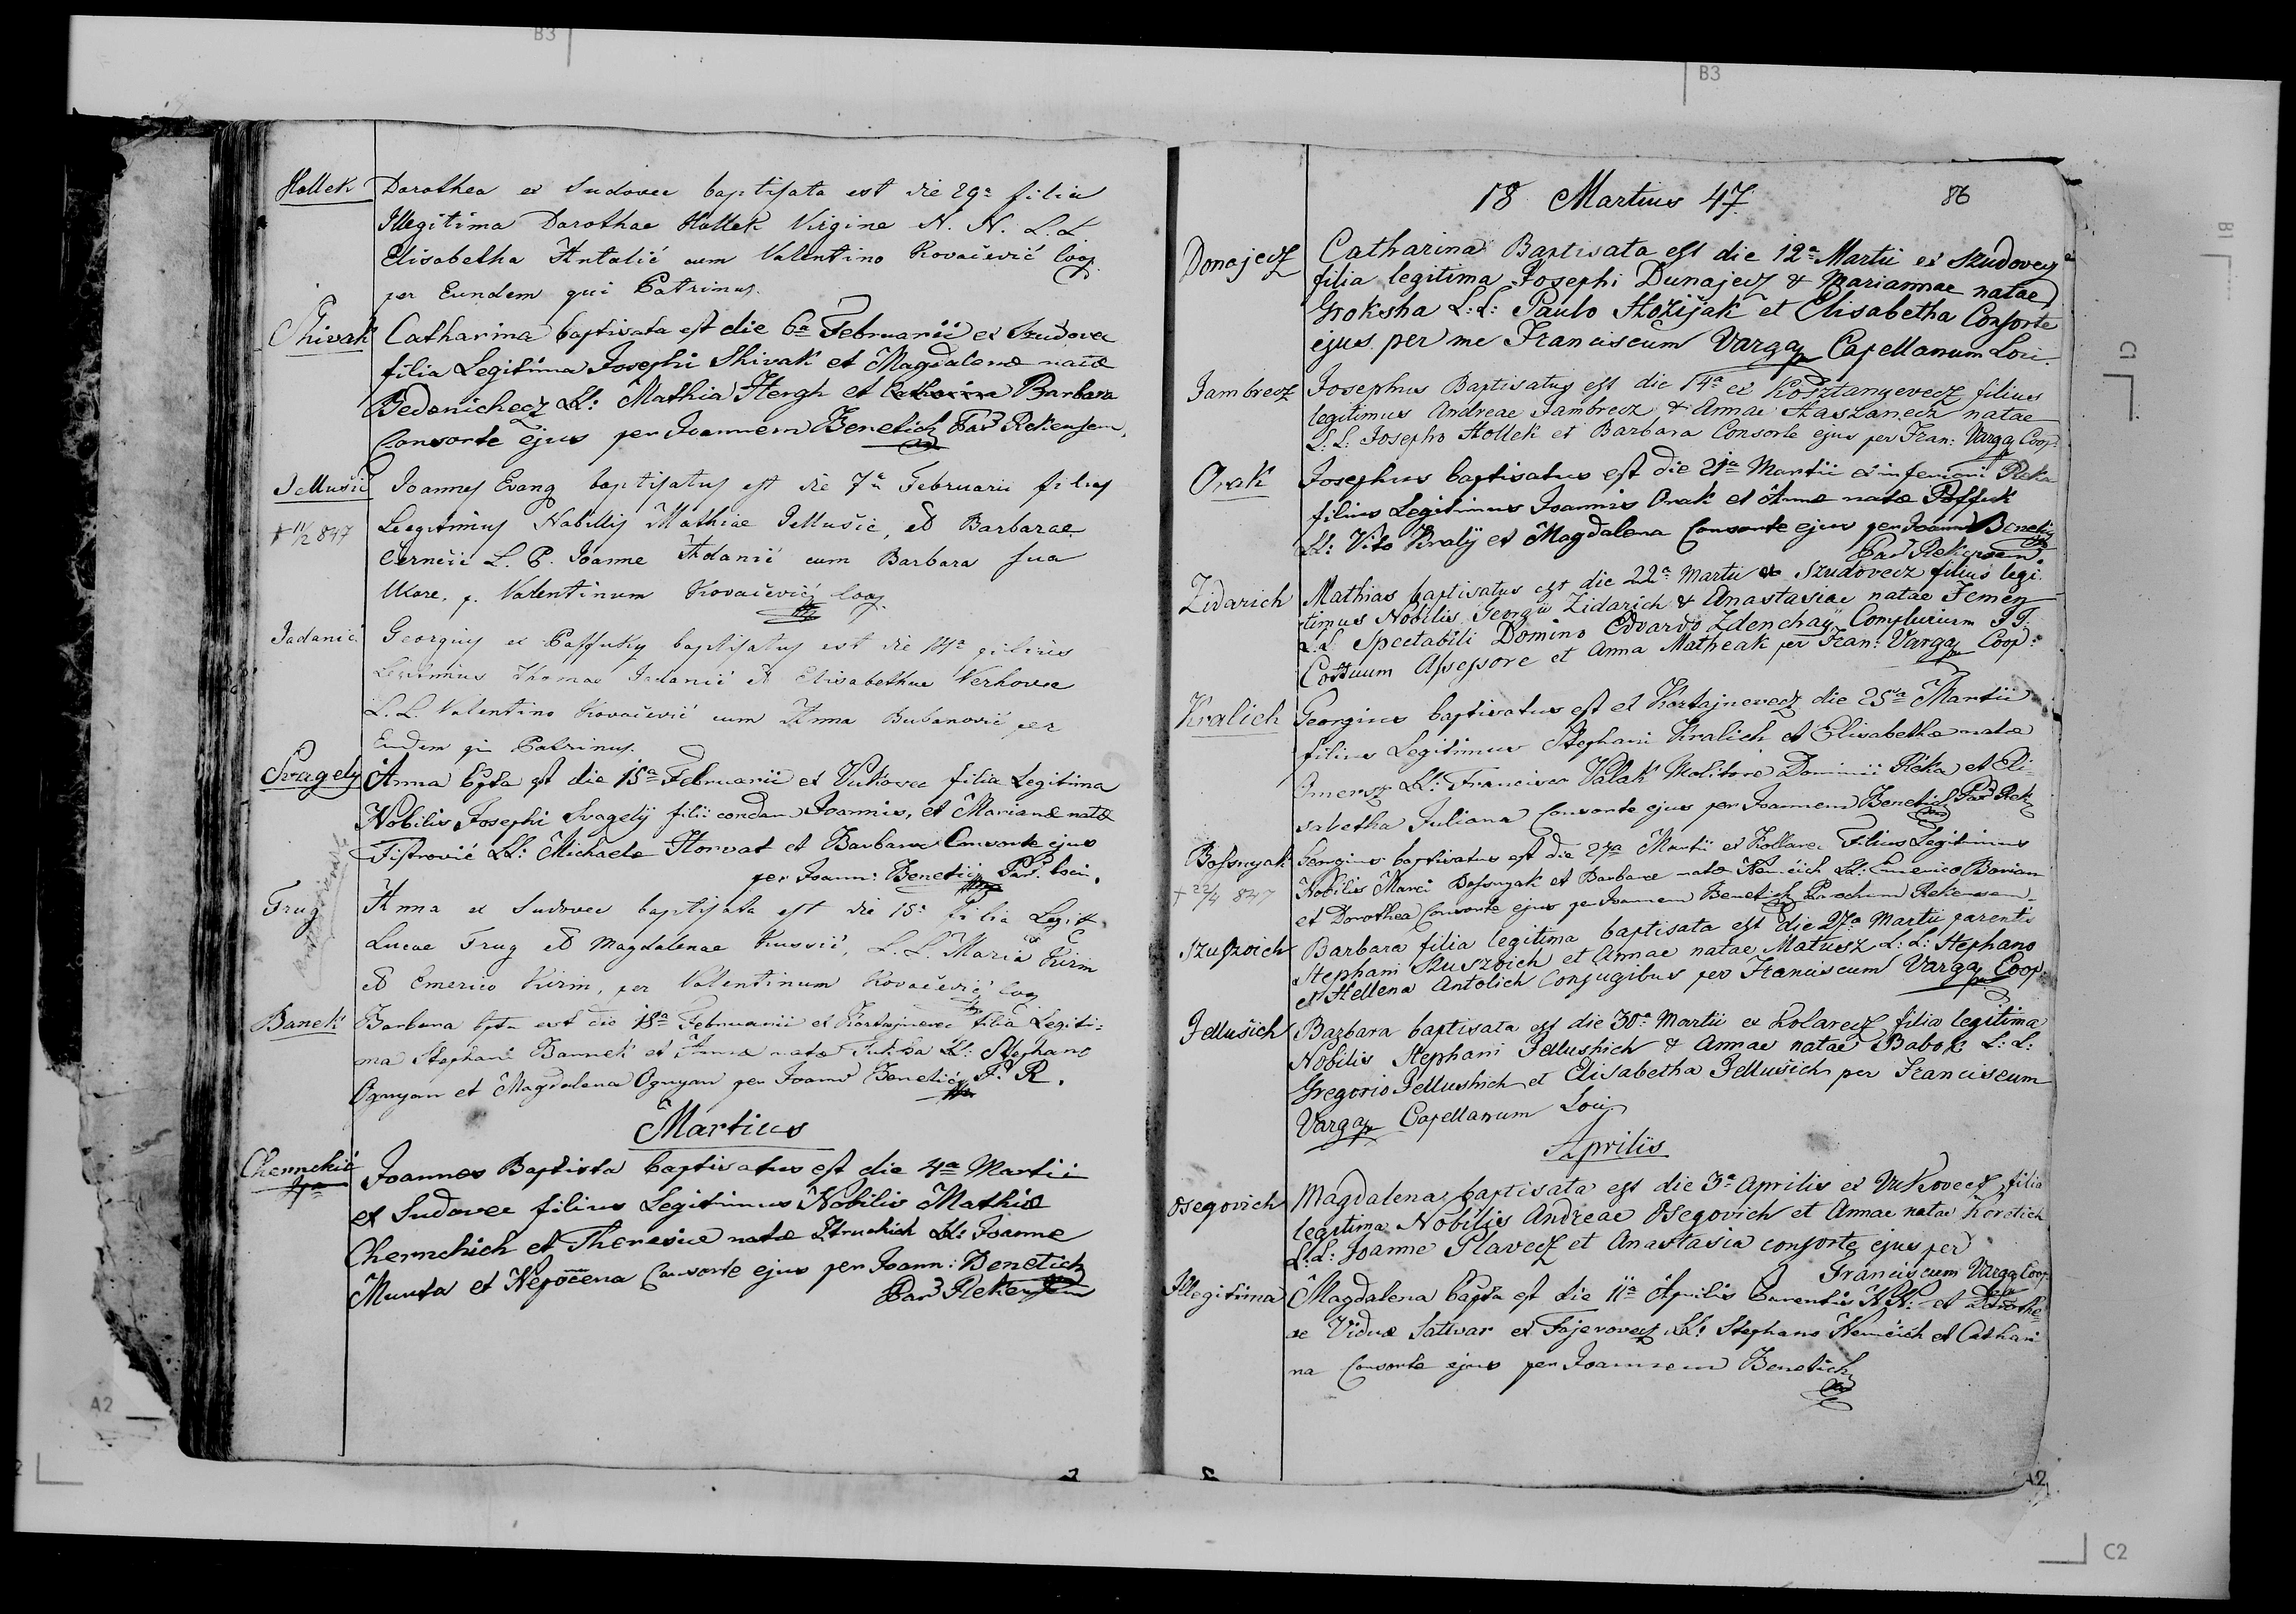 B3
Hallek Dorothea ex Sudovec baptisata est die 29a filia
Illegitima Dorotheae Hallek Virgine N. N. L. L.
Elisabetha Antalić cum Valentino Kovačević Coop.
per Eundem qui Patrinus.
Shivak Catharina baptisata est die 6a Februarii ex Szudovec
filia Legitima Josephi Shivak et Magdalenæ natæ
Bedenichecz LL: Mathia Hergh et Barbara
Consorte ejus per Joannem Benetich Par Rekensem.
Jellušić Joannes Evang baptisatus est die 7a Februarii filius
† 11/2 847 Legitimus Nobillis Mathiae Jellušić, et Barbarae
Cernčić L. P. Joanne Adanić cum Barbara sua
Uxore, p. Valentinum Kovačević Coop.
Jadanić Georgius ex Passuky baptisatus est die 14a filius
Legitimus Thomae Jadanić et Elisabethae Verhovec
L. L. Valentino Kovačević cum Anna Bubanović per
Eundem qui Patrinus.
Svagely Anna bpta est die 15a Februarii ex Vukovec filia Legitima
Nobilis Josephi Svagely filii condam Joannis, et Marianæ natæ
Fistrović LL: Michaele Horvat et Barbara Consorte ejus
per Joann: Benetich Par. loci.
Frug Anna ex Sudovec baptisata est die 15a filia Legit.
Lucae Frug et Magdalenae Kussić, L. L. Maria Kirin
et Emerico Kirin, per Valentinum Kovačević Coop
Banek Barbara bpta est die 18a Februarii ex Kostajnevec filia Legiti=
ma Stephani Bannek et Annæ natæ LL: Stephano
Ognyan et Magdalena Ognyan per Joann Benetić P. R.
Martius
Chernchić Joannes Baptista baptisatus est die 4a Martii
ex Sudovec filius Legitimus Nobilis Mathiæ
Chernchich et Theresiæ natæ Struchich LL: Joanne
Munta et Nepočena Consorte ejus per Joann: Benetich
Par Rekensem
A2
B3
18 Martius 47. 86
Donajecz Catharina Baptisata est die 12a Martii ex Szudovecz
filia legitima Josephi Dunajecz & Mariannae natae
Groksha L: L: Paulo Hožijak et Elisabetha Consorte
ejus per me Franciscum Varga Capellanum Loci
Jambrecz Josephus Baptisatus est die 14a ex Kosztanyevecz filius
legitimus Andreae Jambrecz & Annae Staszanecz natae
L: L: Josepho Hollek et Barbara Consorte ejus per Fran: Varga Coop:
Orak Josephus baptisatus est die 21a Martii ex inferiori Reka
filius Legitimus Joannis Orak et Annæ natæ Possuk
LL: Vito Kralÿ et Magdalena Consorte ejus per Joann Benetich
Par Rekensem
Zidarich Mathias baptisatus est die 22a Martii ex Szudovecz filius legi
timus Nobilis Georgii Zidarich & Anastasiae natae Femen
L: L: Spectabili Domino Edvardo Zdenchay Complurium I I.
Cottuum Assessore et Anna Matheak per Fran: Varga Coop:
Kralich Georgius baptisatus est ex Kostajnevecz die 25a Martii
filius Legitimus Stephani Kralich et Elisabethæ natæ
Jmersz LL: Francisco Valak Molitore Dominii Réka et Eli=
sabetha Juliana Consorte ejus per Joannem Benetich Par Rek
Bossnyak Georgius baptisatus est die 27a Martii ex Kollarec Filius Legitimus
† 22/4 847 Nobilis Marci Bossnyak et Barbaræ natæ Nemčich LL: Emerico Borian
et Dorothea Consorte ejus per Joannem Benetich Parochum Rekensem
Szuszoich Barbara filia legitima baptisata est die 27a Martii parentis
Stephani Szuszoich et Annae natae Matusz L: L: Stephano
et Hellena Antolich Conjugibus per Franciscum Varga Coop:
Jellušich Bazbara baptisata est die 30a Martii ex Kolarecz filia legitima
Nobilis Stephani Jellushich & Annae natae Babok L: L:
Gregorio Jellushich et Elisabetha Jellušich per Franciscum
Varga Capellanum Loci
Aprilis
Osegovich Magdalena baptisata est die 3a Aprilis ex Vukovecz filia
legitima Nobilis Andreae Osegovich et Annae natae Keretich
L: L: Joanne Plavecz et Anastasia consorte ejus per
Franciscum Varga Coop:
Illegitima Magdalena bapta est die 11a Aprilis Parentis NN: et Dorothe=
æ Viduæ Sattvar ex Fajerovecz LL: Stephano Nemčich et Cathari
na Consorte ejus per Joannem Benetich
B1
C1
A2
C2